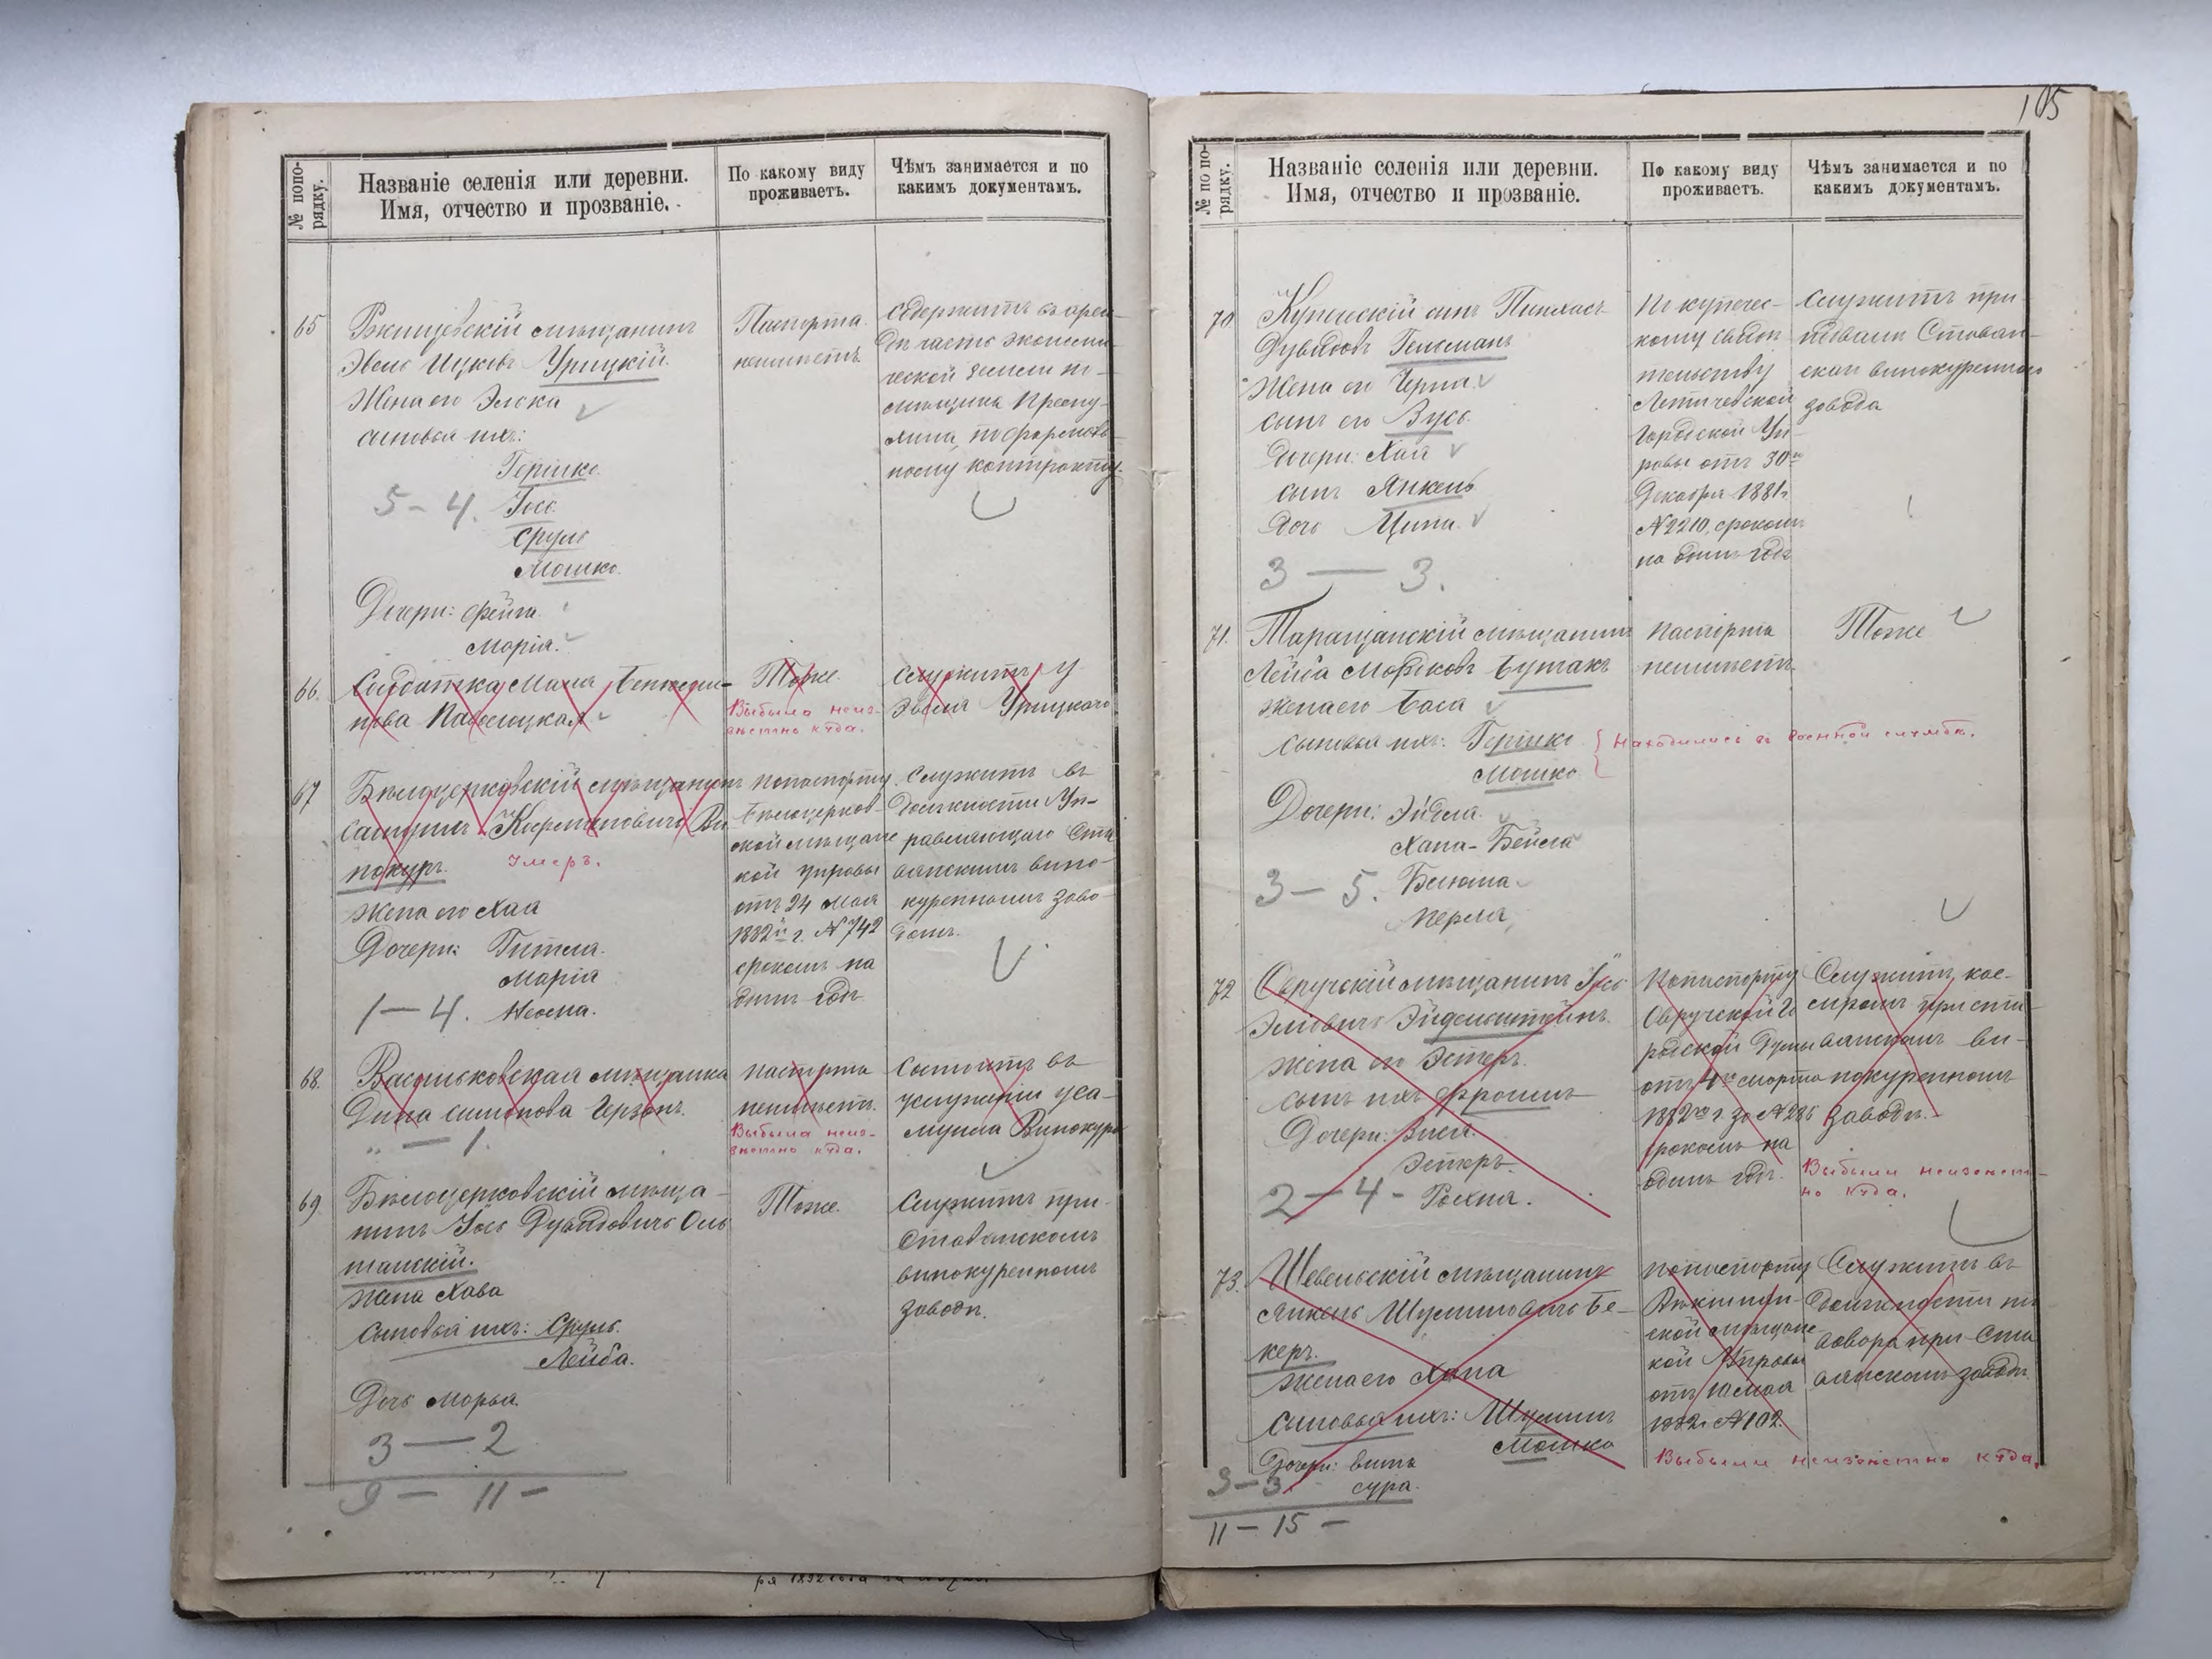 № попо-
рядку.
Названіе селенія или деревни.
Имя, отчество и прозваніе.
По какому виду
проживаетъ.
Чѣмъ занимается и по
какимъ документамъ.
65
Ржищевскій мѣщанинъ
Эвель Ицковъ Урицкій.
Жена его Элька
сыновья ихъ:
Гершко
5 - 4. Іось
Сруль
Мошко.
Дочери: Фейга
Марія.
Паспорта
неимѣетъ
Содержитъ въ арен-
дѣ часть экономи-
ческой земли
по
ному контракту.
66.
Солдатка Маля
Тоже.
Выбыла неиз-
вѣстно куда.
Служитъ у
Эвеля Урицкаго
67
Бѣлоцерковскій мѣщанинъ
Ви
нокуръ.
Умеръ.
Жена его Хая
Дочери: Гитля.
Марія
1 - 4. Нехема.
По паспорту
Бѣлоцерков-
ской мѣщанс
кой управы
отъ 24 Мая
1882го г. № 742
срокомъ на
одинъ годъ
Служитъ въ
должности Уп-
равляющаго Ста
вянскимъ вино-
куреннымъ заво-
домъ.
68.
Васильковская мѣщанка
Дина Симонова Герзонъ.
" - 1.
паспорта
неимѣетъ.
Выбыла неиз-
вѣстно куда.
Состоитъ въ
услуженіи у Са-
муила Винокура
69
Бѣлоцерковскій мѣща-
нинъ Іось Дувидовичъ Оль
шанскій.
Жена Хава
Сыновья ихъ: Сруль.
Лейба.
Дочь Марья.
3 — 2
9 - 11 -
Тоже.
Служитъ при
Ставянскомъ
винокуренномъ
заводѣ.
105
№ по по-
рядку.
Названіе селенія или деревни.
Имя, отчество и прозваніе.
По какому виду
проживаетъ.
Чѣмъ занимается и по
какимъ документамъ.
70
Купческій сынъ Пинхасъ
Дувидовъ Гельманъ
Жена его Черна.
сынъ его Зусь.
Дочери: Хая
сынъ Янкель
Дочь Ципа.
3 — 3.
По купечес-
кому свидѣ
тельству
Летичевской
Городской Уп-
равы отъ 30го
Декабря 1881г
№ 2210, срокомъ
на одинъ годъ
Служитъ при
подвалѣ Ставян-
скаго винокуреннаго
завода
71.
Таращанскій мѣщанинъ
Лейба Мордковъ Бутакъ
жена его Бася
сыновья ихъ: Гершко
Мошко
Находились въ военной службѣ.
Дочери: Эйдля.
Хана-Бейла
3 - 5. Бенюма
Перля,
Паспорта
неимѣетъ.
Тоже
72
Овручскій мѣщанинъ Іось
Эліовичъ Эйдельштейнъ.
Жена его Эстеръ.
сынъ ихъ Фроимъ
Дочери:
Эстеръ.
2 - 4 - Рохля.
По паспорту
Овручской Го
родской Думы
отъ Марта
1882го г. за № 286
срокомъ на
одинъ годъ.
Служитъ кас-
сиромъ при Ста-
вянскомъ ви-
нокуренномъ
заводѣ.
Выбыли неизвѣст-
но куда.
73.
Шавельскій мѣщанинъ
Янкель Шулимовичъ Бе-
керъ.
Жена его Хана
Сыновья ихъ: Шулимъ
Мошко
Дочери: Вита
Сура.
3 - 3
11 - 15 -
По паспорту
ской мѣщанс
кой Управы
отъ Мая
1882г № 102.
Служитъ въ
должности пи
вовара при Ста
вянскомъ заводѣ
Выбыли неизвѣстно куда.